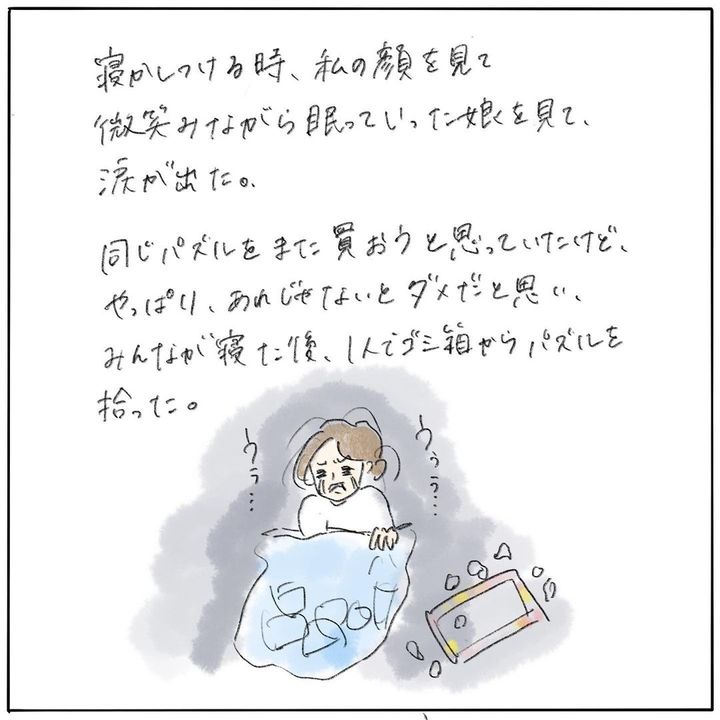 寝かしつける時、私の顔を見て
微笑みながら眠っていった娘を見て、
涙が出た。
同じパズルをまた買おうと思っていたけど、
やっぱり、あれじゃないとダメだと思い、
みんなが寝た後、1人でゴミ箱からパズルを
拾った。
うぅ…
うぅう…